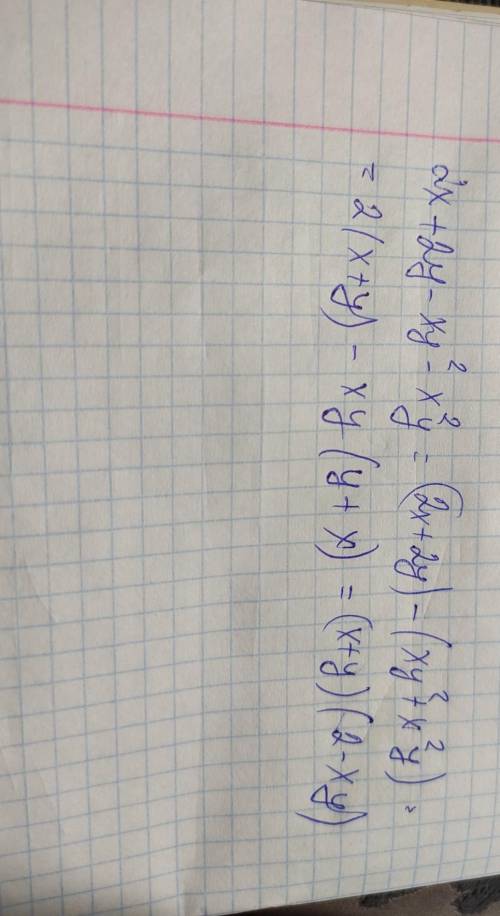 2x + 2y - xy² - x²y = (2x + 2y) - (xy² + x²y) =
= 2(x+y) - xy(y+x) = (x+y)(2-xy)